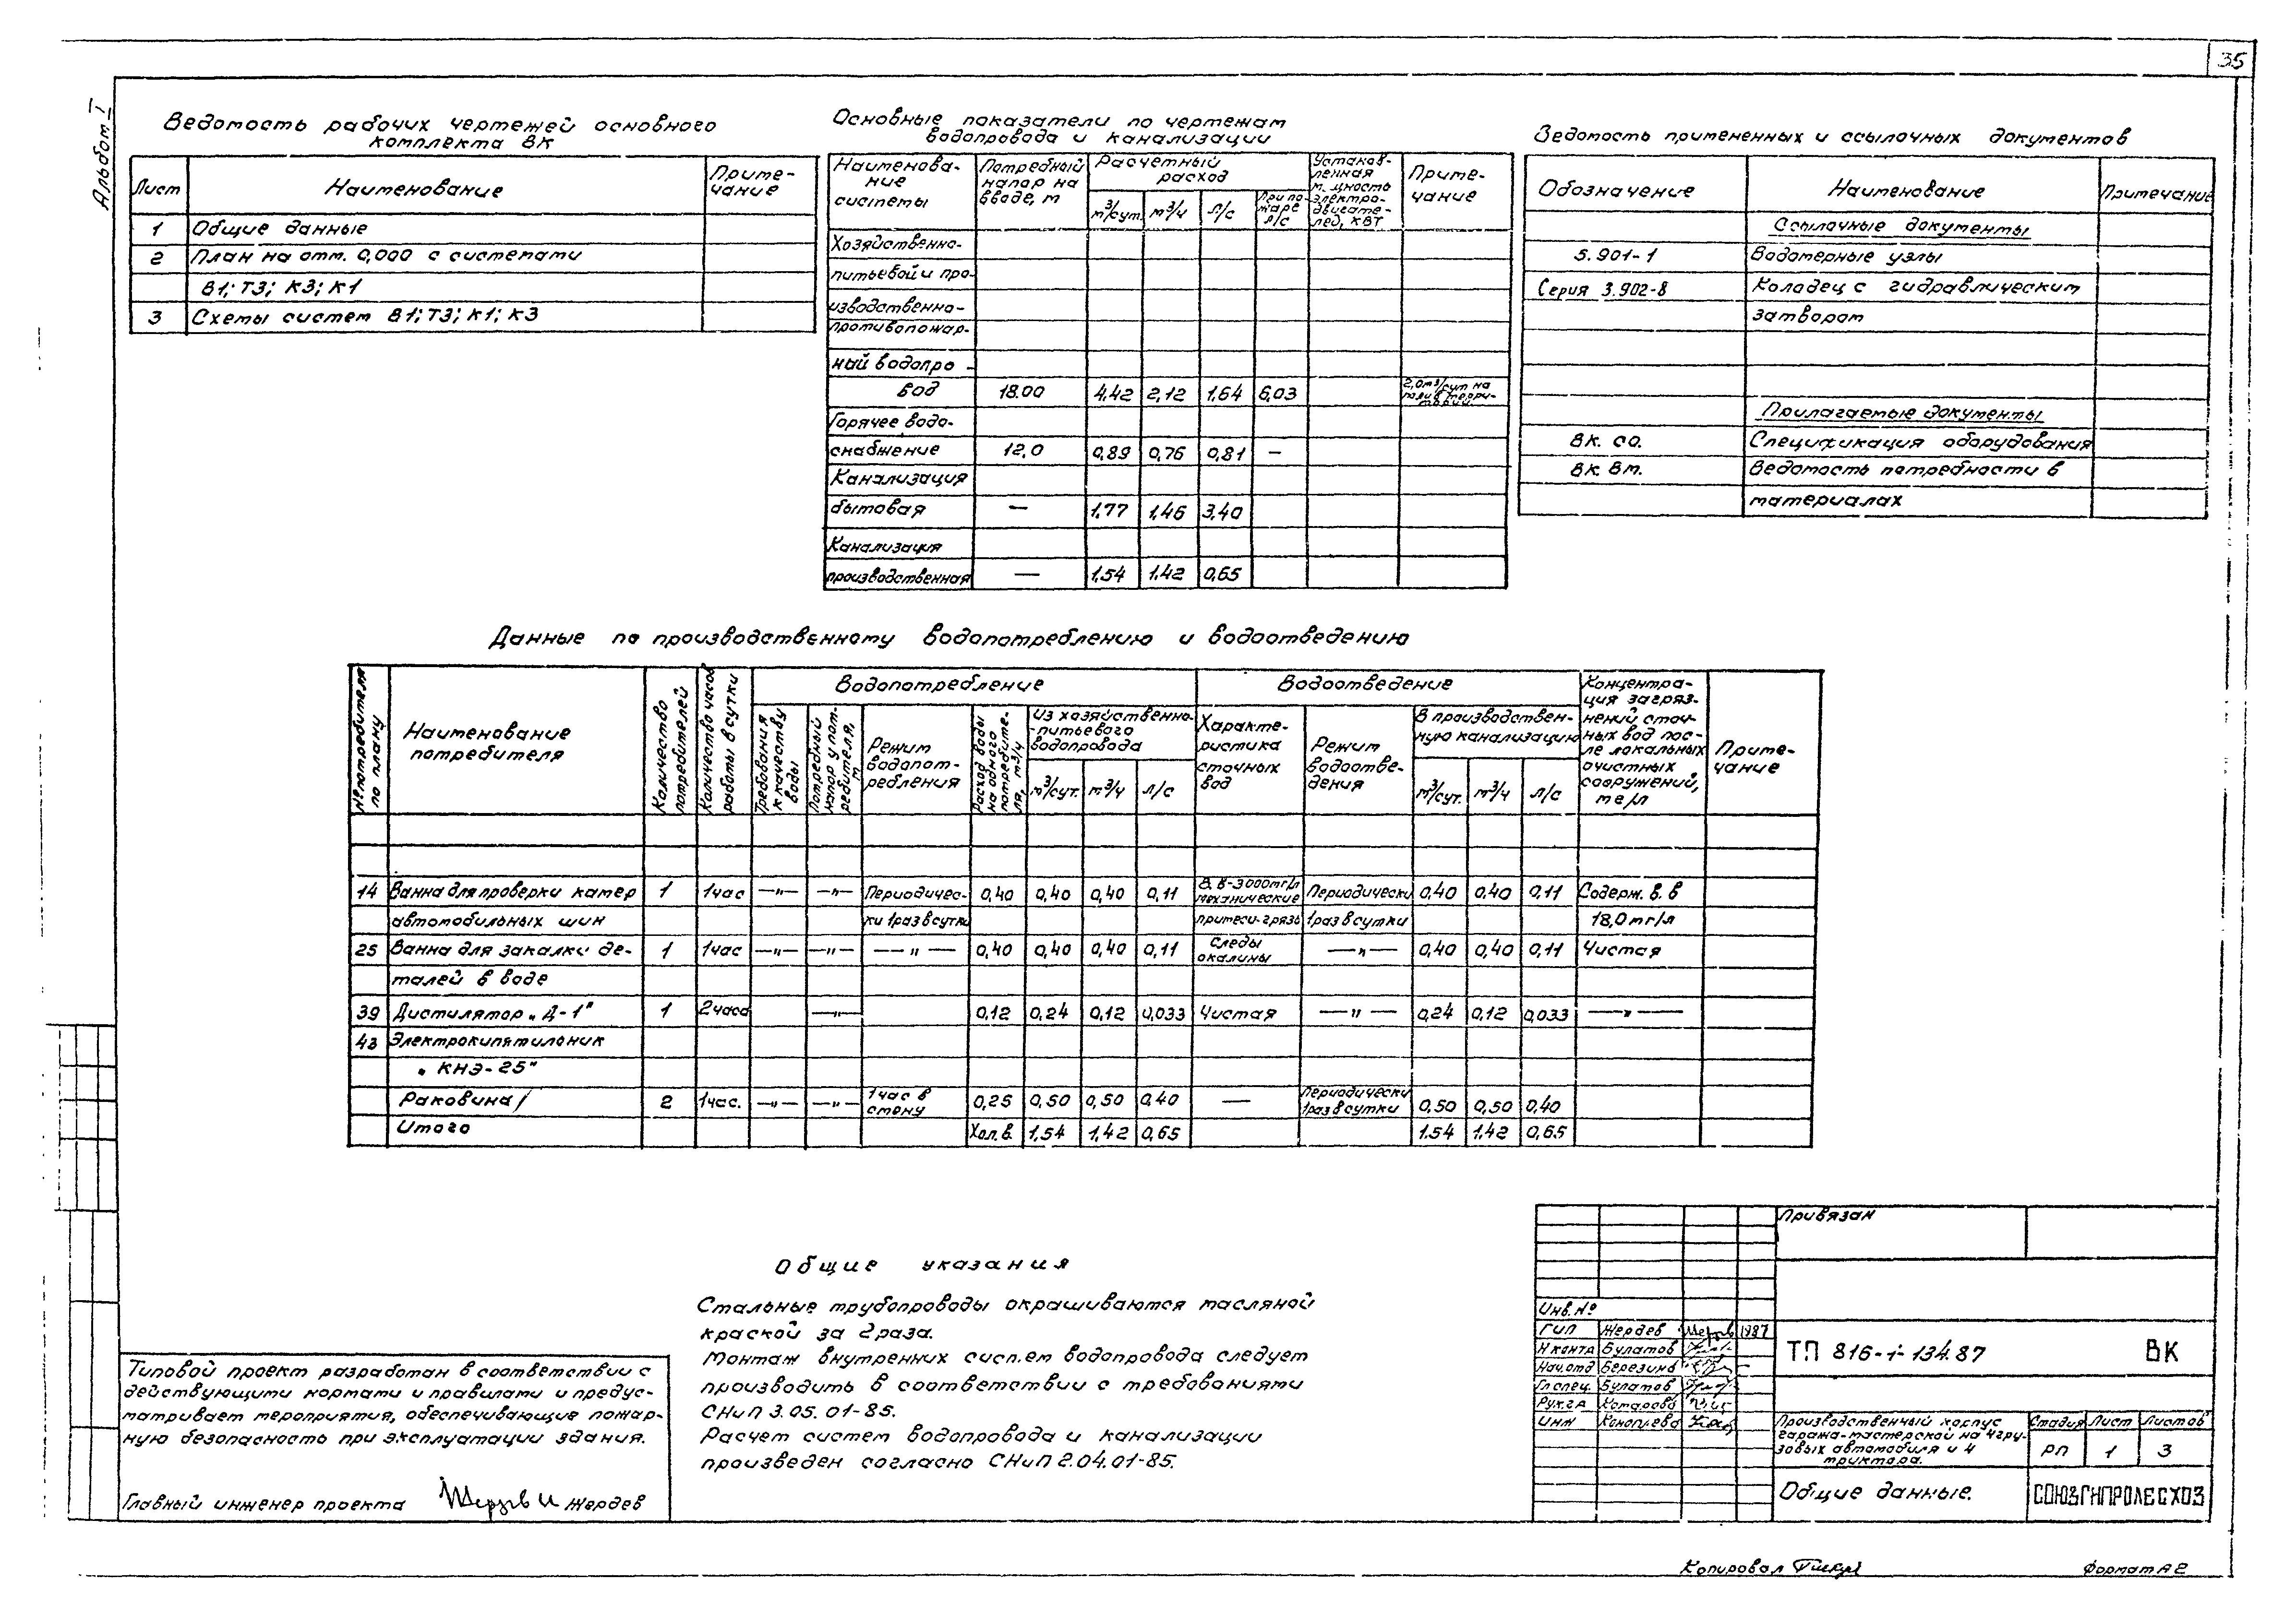 35
Альбом I
Ведомость рабочих чертежей основного
комплекта ВК
Лист Наименование Приме-
чание
1 Общие данные
2 План на отм. 0,000 с системами
В1; Т3; К3; К1
3 Схемы систем В1; Т3; К1; К3
Основные показатели по чертежам
водопровода и канализации
Наименова-
ние
системы
Потребный
напор на
вводе, м
Расчетный
расход
м³/сут. м³/ч л/с При по-
жаре
л/с
Установ-
ленная
мощность
электро-
двигате-
лей, кВт
Приме-
чание
Хозяйственно-
питьевой и про-
изводственно-
противопожар-
ный водопро-
вод 18.00 4,42 2,12 1,64 6,03 2,0м³/сут на
полив терри-
тории
Горячее водо-
снабжение 12,0 0,89 0,76 0,81 —
Канализация
бытовая — 1,77 1,46 3,40
Канализация
производственная — 1,54 1,42 0,65
Ведомость примененных и ссылочных документов
Обозначение Наименование Примечание
Ссылочные документы
5.901-1 Водомерные узлы
Серия 3.902-8 Колодец с гидравлическим
затвором
Прилагаемые документы
ВК. СО. Спецификация оборудования
ВК. Вм. Ведомость потребности в
материалах
Данные по производственному водопотреблению и водоотведению
№ потребителя
по плану
Наименование
потребителя
Количество
потребителей
Количество часов
работы в сутки
Водопотребление
Требования
к качеству
воды
Потребный
напор у пот-
ребителя,
м
Режим
водопот-
ребления
Расход воды
на одного
потребите-
ля, м³/ч
Из хозяйственно-
-питьевого
водопровода
м³/сут. м³/ч л/с
Водоотведение
Характе-
ристика
сточных
вод
Режим
водоотве-
дения
В производствен-
ную канализацию
м³/сут. м³/ч л/с
Концентра-
ция загряз-
нений сточ-
ных вод пос-
ле локальных
очистных
сооружений,
мг/л
Приме-
чание
14 Ванна для проверки камер 1 1час —"— —"— Периодичес- 0,40 0,40 0,40 0,11 В.в-3000мг/л
механические Периодически 0,40 0,40 0,11 Содерж. в. в
автомобильных шин ки 1раз в сутки примеси-грязь 1раз в сутки 18,0 мг/л
25 Ванна для закалки де- 1 1час —"— —"— —"— 0,40 0,40 0,40 0,11 Следы
окалины —"— 0,40 0,40 0,11 Чистая
талей в воде
39 Дистилятор „Д-1" 1 2часа —"— 0,12 0,24 0,12 0,033 Чистая —"— 0,24 0,12 0,033 —"—
43 Электрокипятильник
„КНЭ-25"
Раковина/ 2 1час. —"— —"— 1час в
смену 0,25 0,50 0,50 0,40 — Периодически
1раз в сутки 0,50 0,50 0,40
Итого Хол.в. 1,54 1,42 0,65 1.54 1,42 0,65
Общие указания
Стальные трубопроводы окрашиваются масляной
краской за 2 раза.
Монтаж внутренних систем водопровода следует
производить в соответствии с требованиями
СНиП 3.05.01-85.
Расчет систем водопровода и канализации
произведен согласно СНиП 2.04.01-85.
Типовой проект разработан в соответствии с
действующими нормами и правилами и предус-
матривает мероприятия, обеспечивающие пожар-
ную безопасность при эксплуатации здания.
Главный инженер проекта Жердев
Привязан
Инв. №
ГИП Жердев 1987
Н контр Булатов
Нач.отд Березинь
Гл спец. Булатов
Рук.гр Комарова
Инж Коноплева
ТП 816-1-134.87 ВК
Производственный корпус
гаража-мастерской на 4 гру-
зовых автомобиля и 4
трактора.
Стадия Лист Листов
РП 1 3
Общие данные.
СОЮЗГИПРОЛЕСХОЗ
Копировал
Формат А2